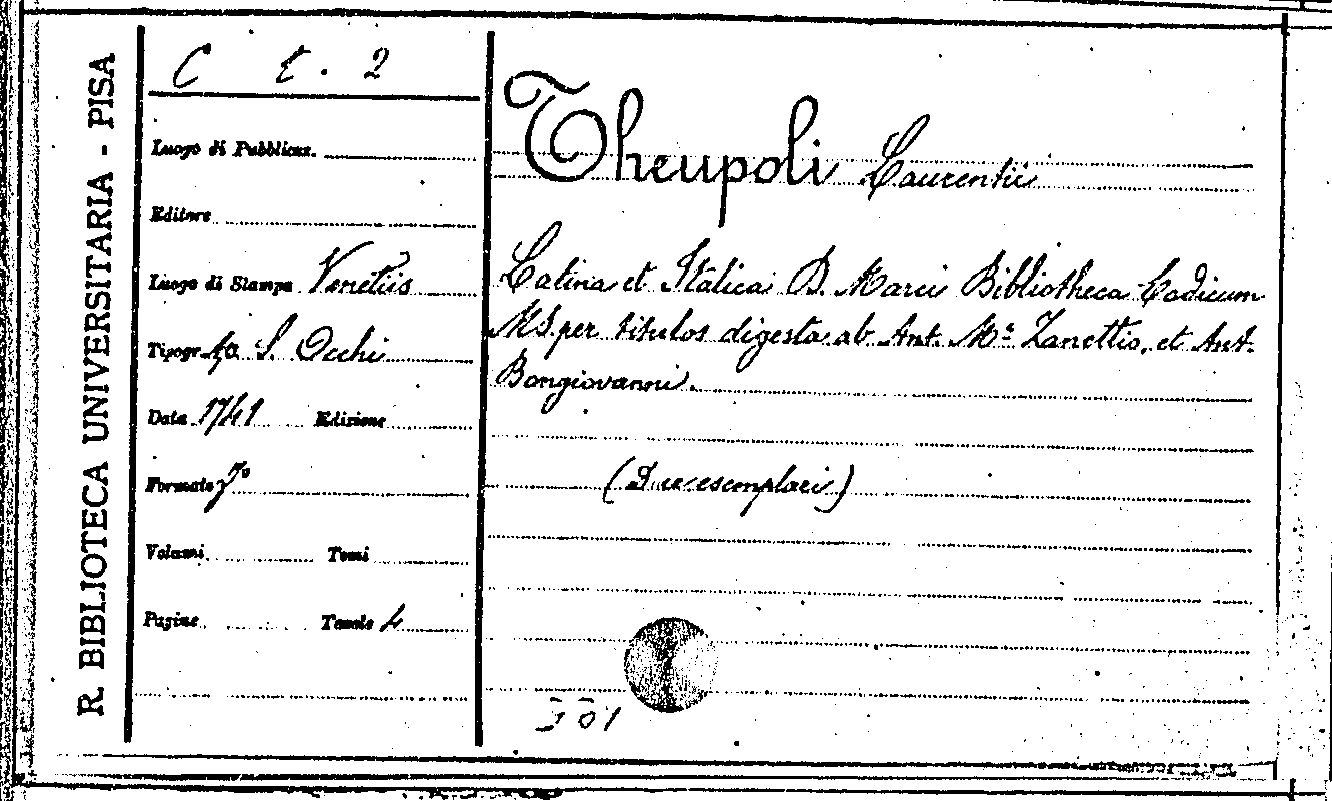 R. BIBLIOTECA UNIVERSITARIA - PISA
C t. 2
Luogo di Pubblicaz.
Editore
Luogo di Stampa Venetiis
Tipogr. S. Occhi
Data 1741 Edizione
Formato fº
Volumi Tomi
Pagine Tavole 4
Theupoli Laurentii
Latina et Italica D. Marci Bibliotheca Codicum
MS. per titulos digesta ab Ant. Mª Zanettio, et Ant.
Bongiovanni.
(Due esemplari)